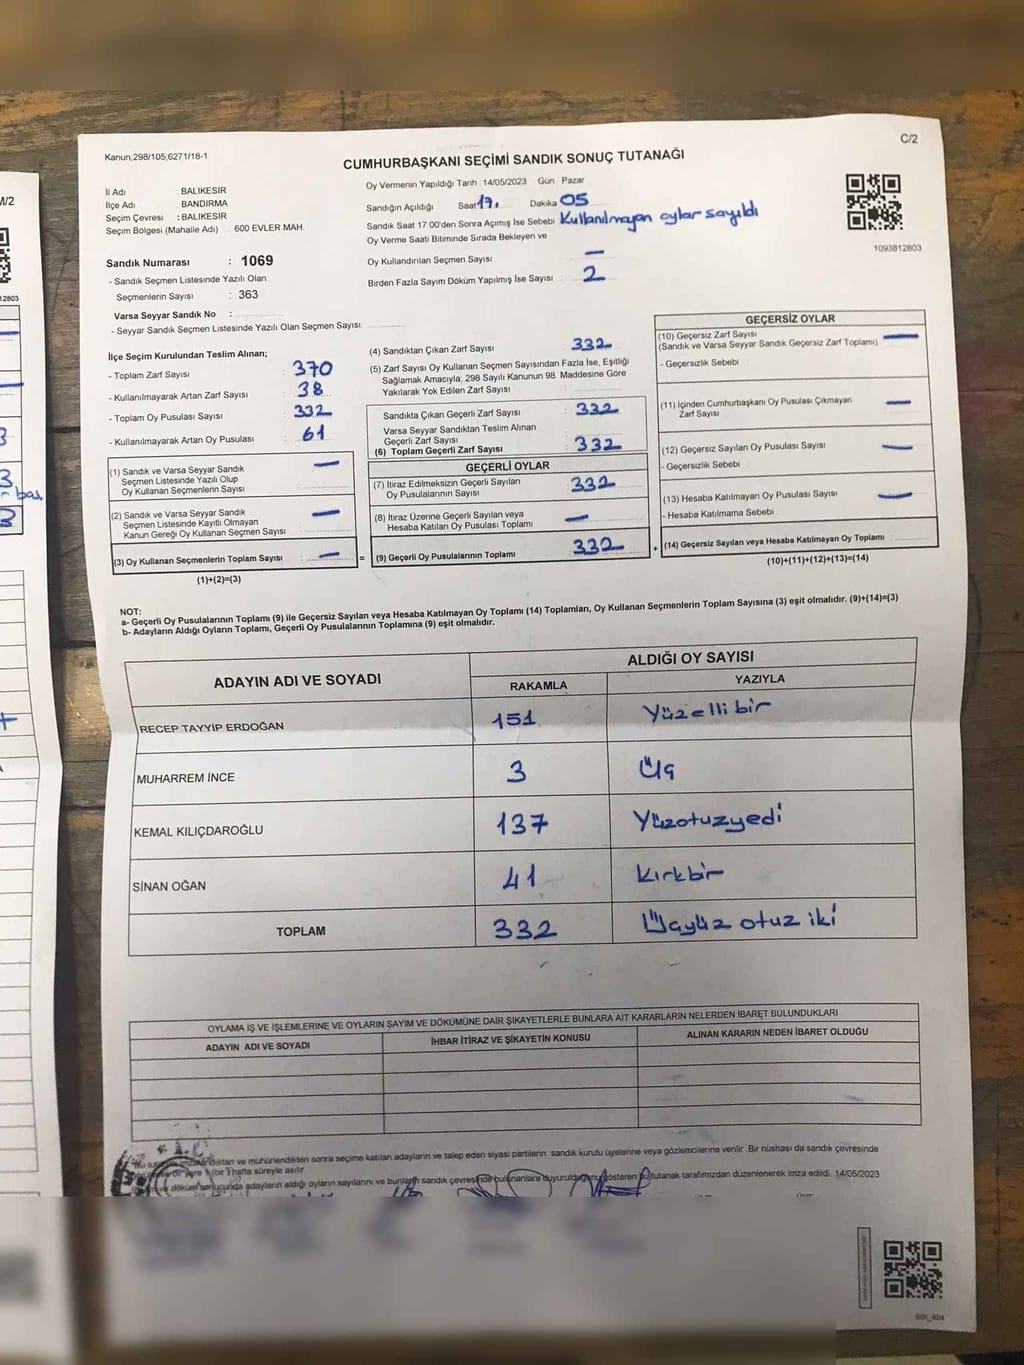 Kanun;298/105;6271/18-1
C/2
CUMHURBAŞKANI SEÇİMİ SANDIK SONUÇ TUTANAĞI
İl Adı : BALIKESİR
İlçe Adı : BANDIRMA
Seçim Çevresi : BALIKESİR
Seçim Bölgesi (Mahalle Adı) 600 EVLER MAH.
Oy Vermenin Yapıldığı Tarih :14/05/2023 Gün Pazar
Sandığın Açıldığı Saat 17. Dakika 05
Sandık Saat 17:00'den Sonra Açımış İse Sebebi Kullanılmayan oylar sayıldı
Oy Verme Saati Bitiminde Sırada Bekleyen ve
Oy Kullandırılan Seçmen Sayısı : —
Birden Fazla Sayım Döküm Yapılmış İse Sayısı : 2
1093812803
Sandık Numarası : 1069
- Sandık Seçmen Listesinde Yazılı Olan
Seçmenlerin Sayısı : 363
Varsa Seyyar Sandık No :
- Seyyar Sandık Seçmen Listesinde Yazılı Olan Seçmen Sayısı:
İlçe Seçim Kurulundan Teslim Alınan;
- Toplam Zarf Sayısı : 370
- Kullanılmayarak Artan Zarf Sayısı : 38
- Toplam Oy Pusulası Sayısı : 332
- Kullanılmayarak Artan Oy Pusulası : 61
(1) Sandık ve Varsa Seyyar Sandık
Seçmen Listesinde Yazılı Olup
Oy Kullanan Seçmenlerin Sayısı : —
(2) Sandık ve Varsa Seyyar Sandık
Seçmen Listesinde Kayıtlı Olmayan
Kanun Gereği Oy Kullanan Seçmen Sayısı : —
(3) Oy Kullanan Seçmenlerin Toplam Sayısı : —
(1)+(2)=(3)
(4) Sandıktan Çıkan Zarf Sayısı : 332
(5) Zarf Sayısı Oy Kullanan Seçmen Sayısından Fazla İse, Eşitliği
Sağlamak Amacıyla, 298 Sayılı Kanunun 98. Maddesine Göre
Yakılarak Yok Edilen Zarf Sayısı :
Sandıkta Çıkan Geçerli Zarf Sayısı : 332
Varsa Seyyar Sandıktan Teslim Alınan
Geçerli Zarf Sayısı :
(6) Toplam Geçerli Zarf Sayısı : 332
GEÇERLİ OYLAR
(7) İtiraz Edilmeksizin Geçerli Sayılan
Oy Pusulalarının Sayısı : 332
(8) İtiraz Üzerine Geçerli Sayılan veya
Hesaba Katılan Oy Pusulası Toplamı : —
= (9) Geçerli Oy Pusulalarının Toplamı : 332
GEÇERSİZ OYLAR
(10) Geçersiz Zarf Sayısı
(Sandık ve Varsa Seyyar Sandık Geçersiz Zarf Toplamı) : —
- Geçersizlik Sebebi :
(11) İçinden Cumhurbaşkanı Oy Pusulası Çıkmayan
Zarf Sayısı : —
(12) Geçersiz Sayılan Oy Pusulası Sayısı : —
- Geçersizlik Sebebi :
(13) Hesaba Katılmayan Oy Pusulası Sayısı : —
- Hesaba Katılmama Sebebi :
+ (14) Geçersiz Sayılan veya Hesaba Katılmayan Oy Toplamı :
(10)+(11)+(12)+(13)=(14)
NOT:
a- Geçerli Oy Pusulalarının Toplamı (9) ile Geçersiz Sayılan veya Hesaba Katılmayan Oy Toplamı (14) Toplamları, Oy Kullanan Seçmenlerin Toplam Sayısına (3) eşit olmalıdır. (9)+(14)=(3)
b- Adayların Aldığı Oyların Toplamı, Geçerli Oy Pusulalarının Toplamına (9) eşit olmalıdır.
ADAYIN ADI VE SOYADI
ALDIĞI OY SAYISI
RAKAMLA YAZIYLA
RECEP TAYYİP ERDOĞAN 151 Yüzelli bir
MUHARREM İNCE 3 Üç
KEMAL KILIÇDAROĞLU 137 Yüzotuzyedi
SİNAN OĞAN 41 Kırkbir
TOPLAM 332 Üçyüz otuz iki
OYLAMA İŞ VE İŞLEMLERİNE VE OYLARIN SAYIM VE DÖKÜMÜNE DAİR ŞİKAYETLERLE BUNLARA AİT KARARLARIN NELERDEN İBARET BULUNDUKLARI
ADAYIN ADI VE SOYADI İHBAR İTİRAZ VE ŞİKAYETİN KONUSU ALINAN KARARIN NEDEN İBARET OLDUĞU
Bu tutanak imzalandıktan ve mühürlendikten sonra seçime katılan adayların ve talep eden siyasi partilerin sandık kurulu üyelerine veya gözlemcilerine verilir. Bir nüshası da sandık çevresinde
1 (bir) hafta süreyle asılır.
ve döküm sonucunda adayların aldığı oyların sayılarını ve bunların sandık çevresinde bulunanlara duyurulduğunu gösteren bu tutanak tarafımızdan düzenlenerek imza edildi. 14/05/2023